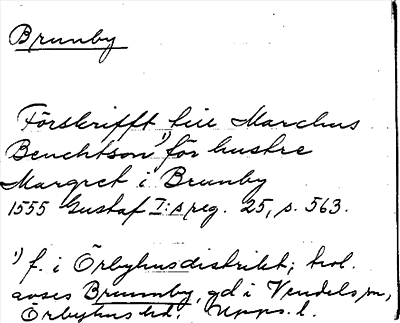 Brunby
Förskrifft till Marchus
Benchtson¹⁾ för hustre
Margret i Brunby
1555 Gustaf I:s reg. 25, s. 563.
¹⁾ f. i Örbyhusdistrikt; trol.
avses Brunnby, gd i Vendels sn,
Örbyhus hd. Upps. l.